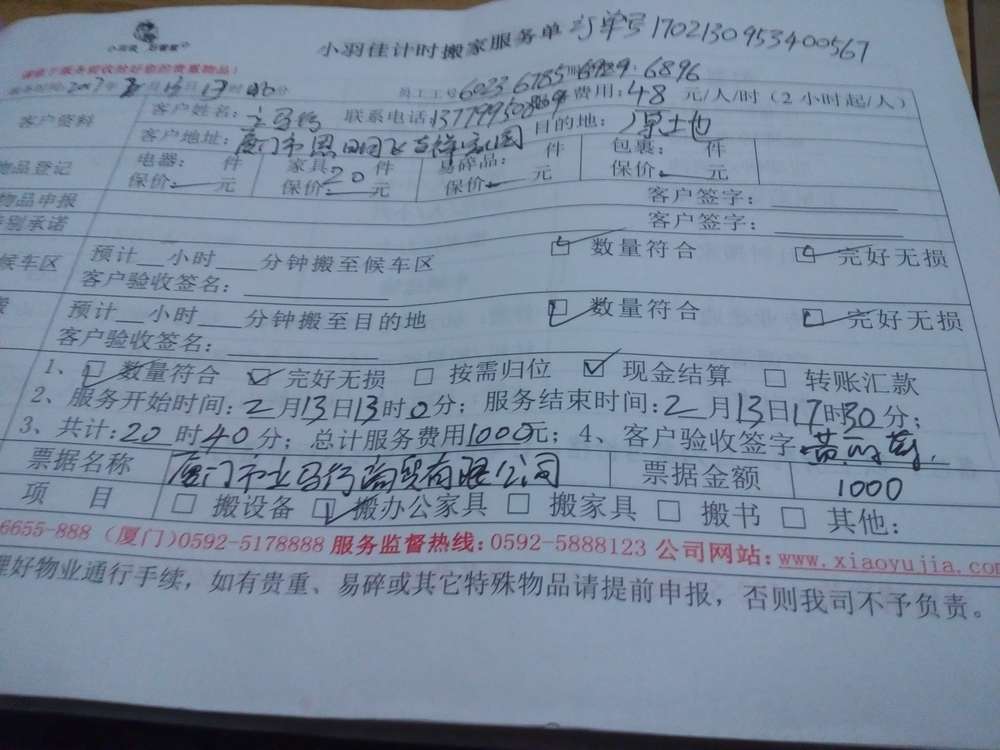 小羽佳计时搬家服务单 订单号1702130953400567
请收下服务前收放好您的贵重物品！
服务时间：2017年2月13日13时00分 员工工号6023 6785 6929 6896
客户资料 客户姓名： 联系电话：费用：48 元/人/时（2 小时起/人）
客户地址：厦门市思明区 目的地：原土地
物品登记 电器： 件 家具： 件 易碎品： 件 包裹： 件
保价 元 保价20 元 保价 元 保价 元
物品申报 客户签字：
特别承诺 客户签字：
候车区 预计 小时 分钟搬至候车区 数量符合 完好无损
客户验收签名：
预计 小时 分钟搬至目的地 数量符合 完好无损
客户验收签名：
1、 数量符合 完好无损 按需归位 现金结算 转账汇款
2、服务开始时间：2月13日13时0分；服务结束时间：2月13日17时30分；
3、共计：20时40分；总计服务费用1000元；4、客户验收签字
票据名称 厦门市业马行商贸有限公司 票据金额 1000
项 目 搬设备 搬办公家具 搬家具 搬书 其他：
6655-888 (厦门)0592-5178888 服务监督热线：0592-5888123 公司网站：www.xiaoyujia.com
理好物业通行手续，如有贵重、易碎或其它特殊物品请提前申报，否则我司不予负责。